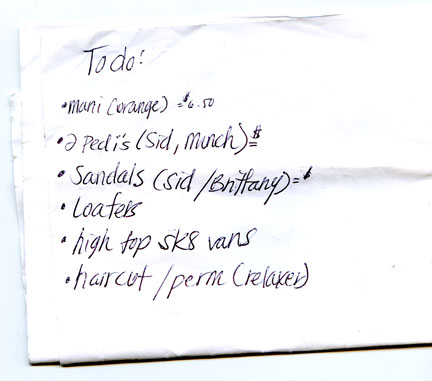 To do:
• mani (orange) = $6.50
• 2 Pedi's (Sid, Munch) = $
• Sandals (Sid / Brittany) = $
• Loafers
• high top sk8 vans
• haircut / perm (relaxer)